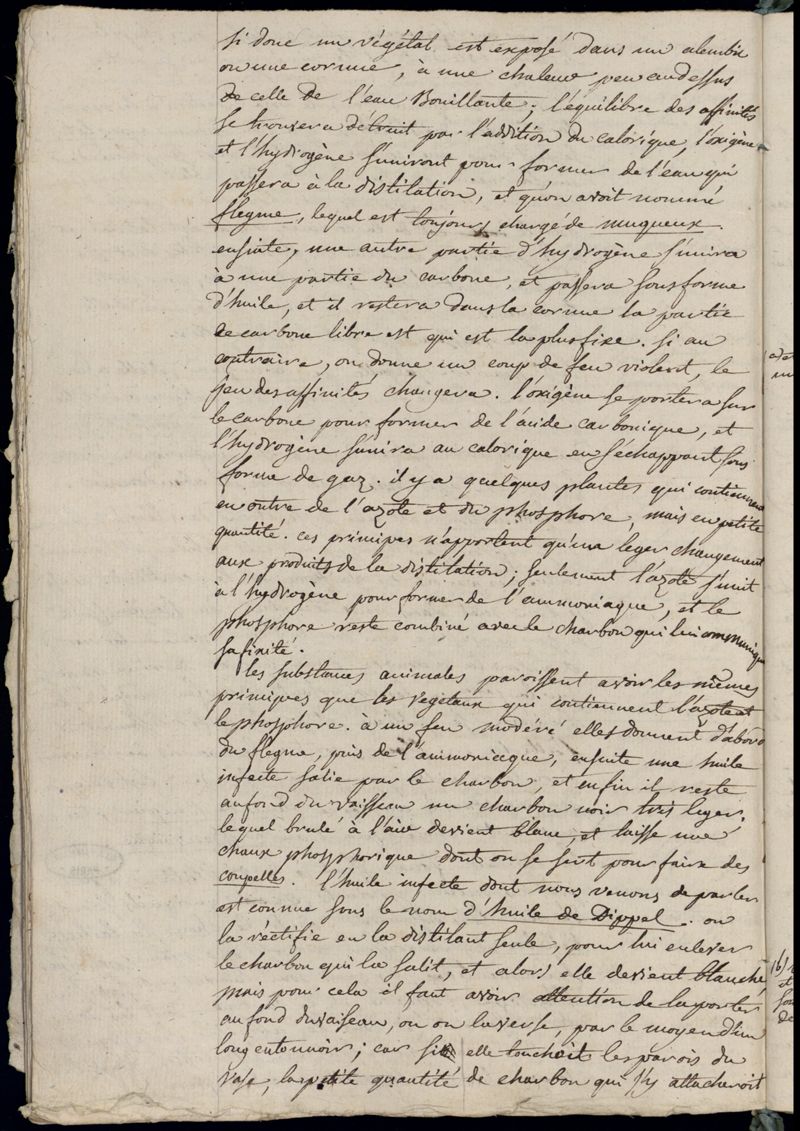 Si donc un végétal est exposé dans un alembic
ou une cornue, à une chaleur peu au dessus
de celle de l'eau Bouillante, l'équilibre des affinités
se trouvera détruit par l'addition du calorique, l'oxigène
et l'hydrogène s'uniront pour former de l'eau qui
passera à la distilation, et qu'on avoit nommé
flegme, lequel est toujours chargé de muqueux.
ensuite, une autre partie d'hydrogène s'unira
à une partie du carbone, et passera sous forme
d'huile, et il restera dans la cornue la partie
de carbone libre et qui est la plus fixe. Si au
contraire, on donne un coup de feu violent, le
jeu des affinités changera. l'oxigène se portera sur
le carbone pour former de l'acide carbonique, et
l'hydrogène s'unira au calorique en s'échappant sous
forme de gaz. il y a quelques plantes qui contiennent
en outre de l'azote et du phosphore, mais en petite
quantité. ces principes n'apportent qu'un leger changement
aux produits de la distilation; seulement l'azote s'unit
à l'hydrogène pour former de l'ammoniaque, et le
phosphore reste combiné avec le charbon qui lui communique
sa fixité.
les substances animales paroissent avoir les mêmes
principes que les vegetaux qui contiennent l'azote et
le phosphore. à un feu modéré elles donnent d'abord
du flegme, puis de l'ammoniaque, ensuite une huile
infecte salie par le charbon, et enfin il reste
au fond du vaisseau un charbon noir très leger,
lequel brulé à l'air devient blanc, et laisse une
chaux phosphorique dont on se sert pour faire des
coupelles. l'huile infecte dont nous venons de parler
est connue sous le nom d'huile de Dippel. on
la rectifie en la distilant seule, pour lui enlever
le charbon qui la salit, et alors elle devient blanche,
mais pour cela il faut avoir attention de la porter
au fond du vaisseau, ou on la verse, par le moyen d'un
long entonnoir; car si elle touchoit les parois du
vase, la petite quantité de charbon qui s'y attacheroit